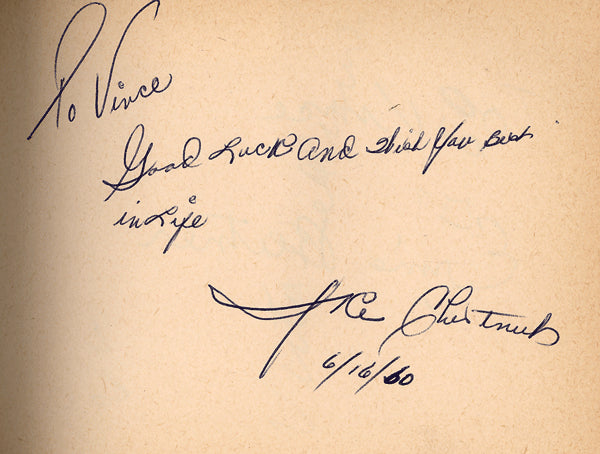 To Vince
Good Luck And Wish You Best
in Life
Ike Chestnut
6/16/60